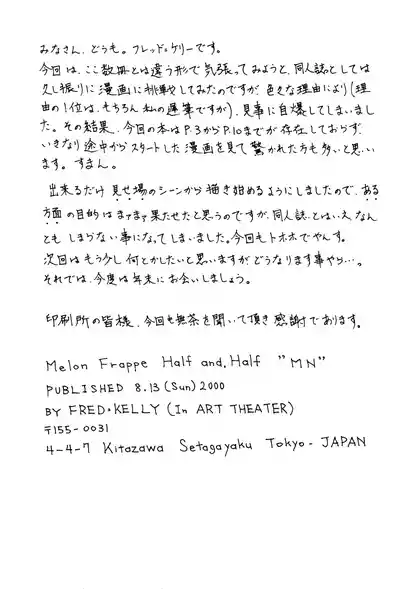 みなさん、どうも。フレッド・ケリーです。
今回は、ここ数冊とは違う形で気張ってみようと、同人誌としては
久し振りに漫画に挑戦してみたのですが、色々な理由により(理
由の1位は、もちろん私の遅筆ですが)、見事に自爆してしまいまし
た。その結果、今回の本はP.3からP.10までが存在しておらず、
いきなり途中からスタートした漫画を見て驚かれた方も多いと思い
ます。すまん。
出来るだけ見せ場のシーンから描き始めるようにしましたので、ある
方面の目的はまぁまぁ果たせたと思うのですが、同人誌とはいえなん
ともしまらない事になってしまいました。今回もトホホでやんす。
次回はもう少し何とかしたいと思いますが、どうなります事やら…。
それでは、今度は年末にお会いしましょう。
印刷所の皆様、今回も無茶を聞いて頂き感謝であります。
Melon Frappe Half and. Half "MN"
PUBLISHED 8.13 (Sun) 2000
BY FRED・KELLY (In ART THEATER)
〒155-0031
4-4-7 Kitazawa Setagayaku Tokyo-JAPAN